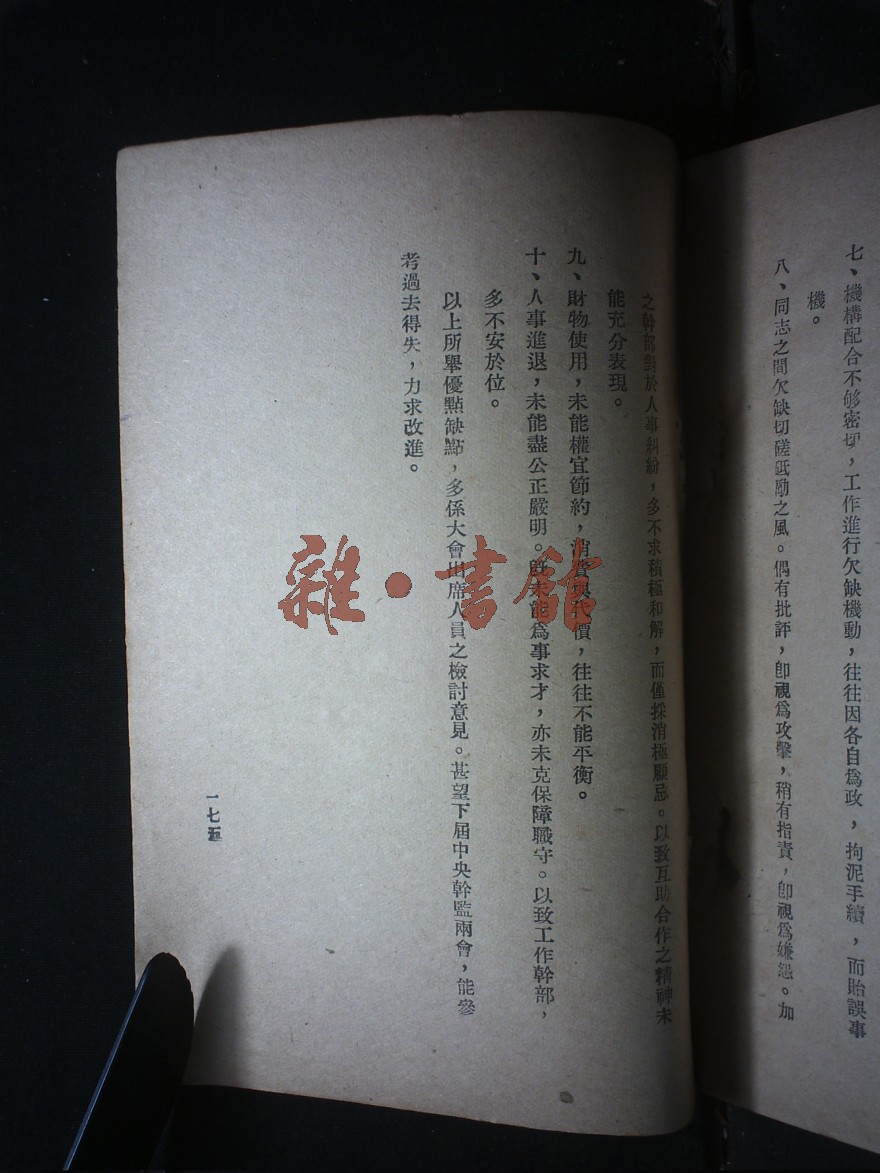 七、機構配合不够密切，工作進行欠缺機動，往往因各自爲政，拘泥手續，而貽誤事
機。
八、同志之間欠缺切磋砥勵之風。偶有批評，卽視爲攻擊，稍有指責，卽視爲嫌怨。加
之幹部對於人事糾紛，多不求積極和解，而僅採消極顧忌。以致互助合作之精神未
能充分表現。
九、財物使用，未能權宜節約，消費與代價，往往不能平衡。
十、人事進退，未能盡公正嚴明。旣未能爲事求才，亦未克保障職守。以致工作幹部，
多不安於位。
以上所舉優點缺點，多係大會出席人員之檢討意見。甚望下屆中央幹監兩會，能參
考過去得失，力求改進。
一七五
雜·書館